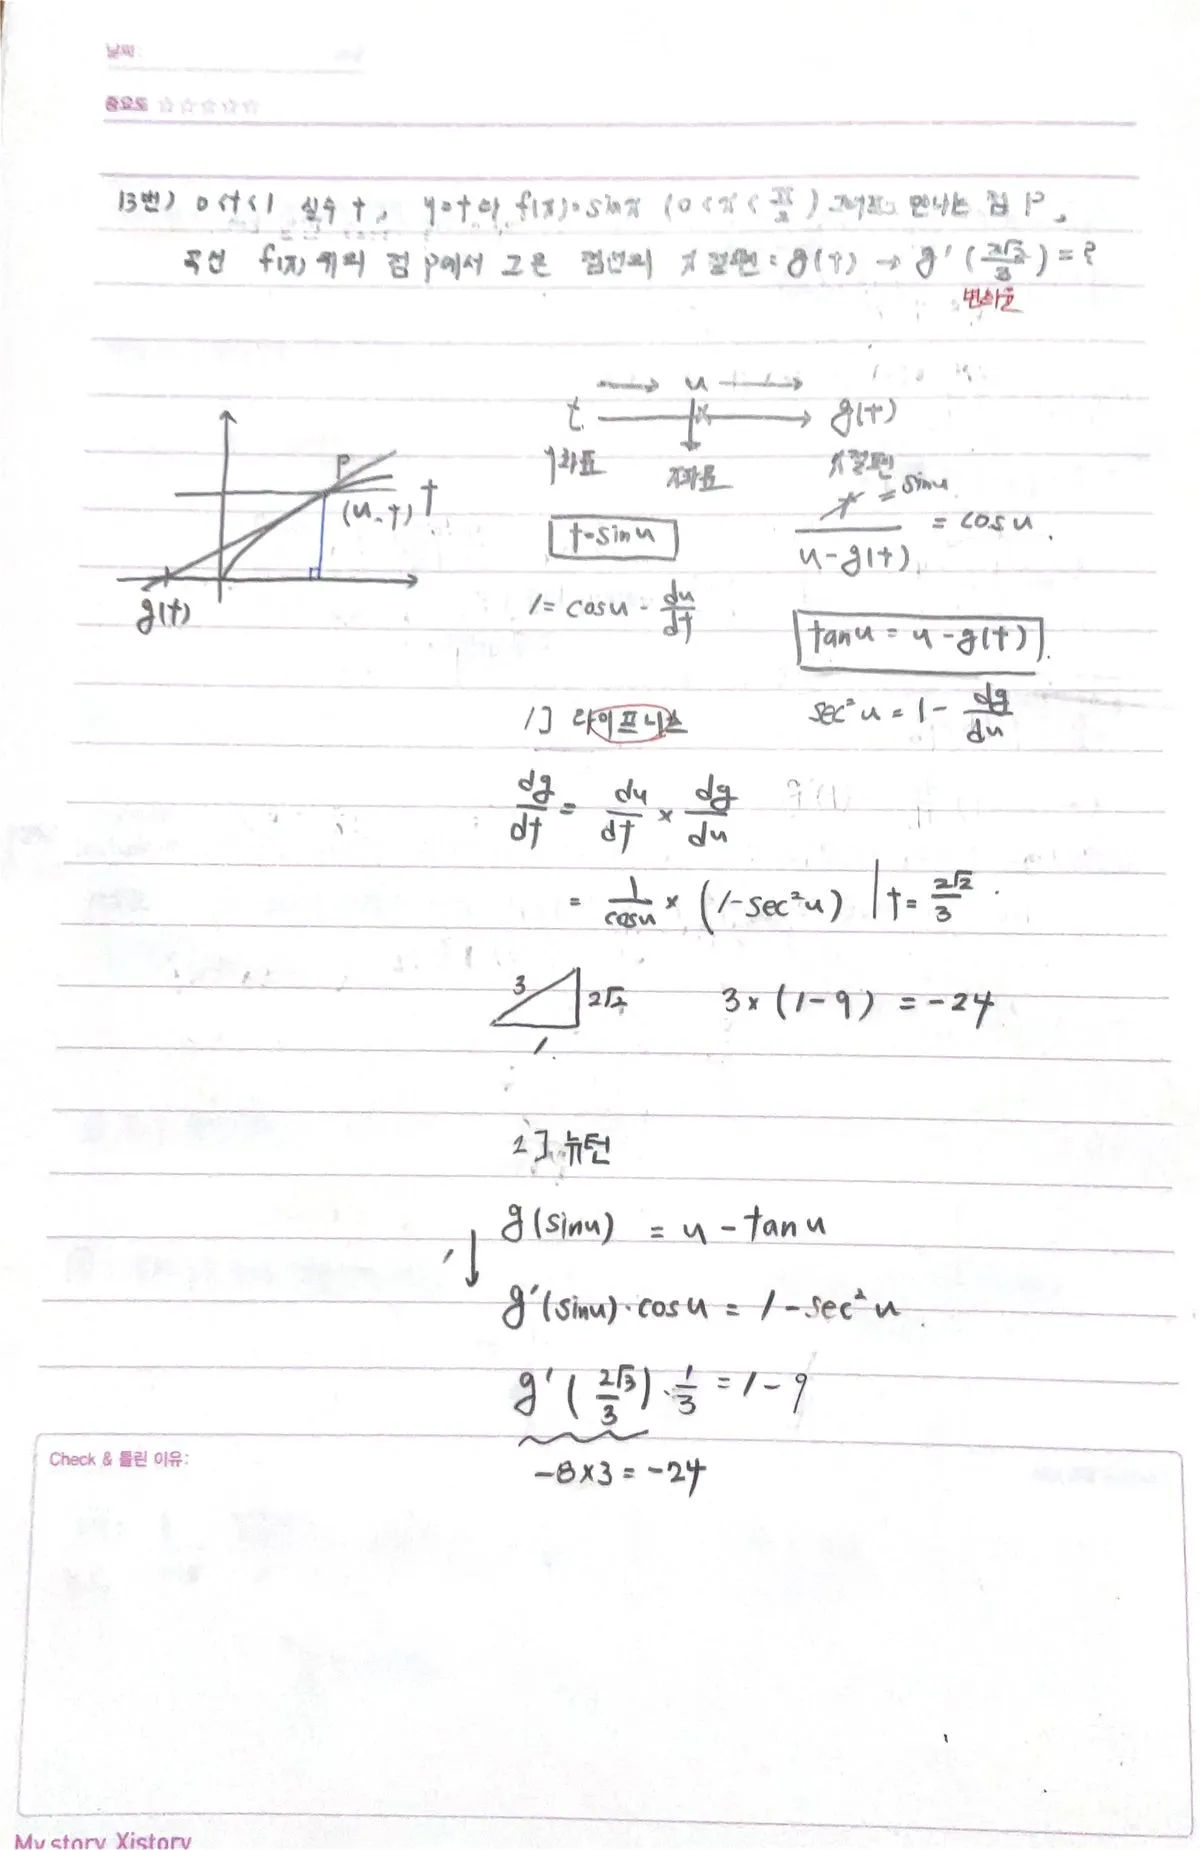 날짜:
중요도 ☆☆☆☆☆
13번) 0<t<1 실수 t, y=t와 f(x)=sinx (0<x<π/2) 만나는 점 P,
곡선 f(x) 위의 점 P에서 그은 접선의 x절편 = g(t) → g'(2√2/3) = ?
변화율
u
t → g(t)
y좌표 x좌표 x절편
P
(u, t) t
g(t)
t=sinu
t = sinu
t/(u-g(t)) = cosu
1 = cosu · du/dt
tanu = u - g(t)
1] 라이프니츠
sec²u = 1 - dg/du
dg/dt = du/dt × dg/du
= 1/cosu × (1-sec²u) | t = 2√2/3
3 2√2 1
3 × (1-9) = -24
2] 뉴턴
g(sinu) = u - tanu
' ↓
g'(sinu)·cosu = 1 - sec²u
g'(2√3/3)·1/3 = 1 - 9
-8×3 = -24
Check & 틀린 이유:
My story Xistory